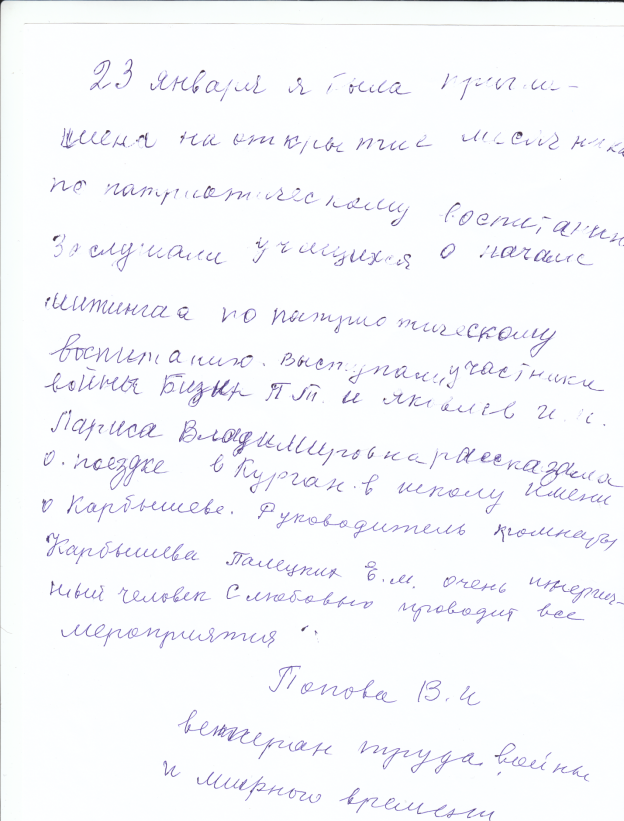 23 января я была пригла-
шена на открытие месячника
по патриотическому воспитанию
Заслушали учащихся о начале
митинга о по патриотическому
воспитанию. выступали участники
войны Бизин П.Т. и Яковлев И.И.
Лариса Владимировна рассказала
о. поездке в Курган. в школу имени
о Карбышеве. Руководитель комнаты
Карбышева Палецких Е.М. очень
ный человек с любовью проводит все
мероприятия
Попова В.И
ветеран труда. войны
и мирного времени